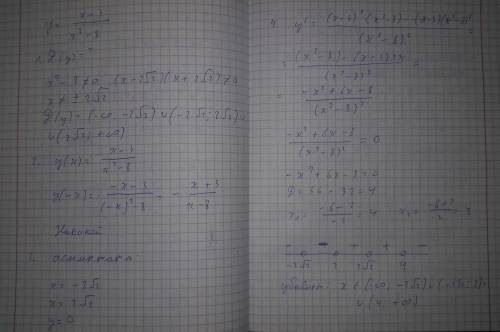 y = (x-3)/(x²-8)
1. D(y) = ?
x² - 8 ≠ 0 (x-2√2)(x+2√2) ≠ 0
x ≠ ± 2√2
D(y) = (-∞, -2√2) ∪ (-2√2; 2√2) ∪
∪ (2√2; +∞)
2. y(x) = (x-3)/(x²-8)
y(-x) = (-x-3)/((-x)²-8) = - (x+3)/(x-8)
Никакой
асимптота
x = -2√2
x = 2√2
y = 0
4. y' = ((x-3)'(x²-8)-(x-3)(x²-8)')/(x²-8)² =
= ((x²-8)-(x-3)2x)/(x²-8)² =
= (-x²+6x-8)/(x²-8)²
(-x²+6x-8)/(x²-8)² = 0
-x²+6x-8=0
D = 36-32=4
x₁ = (-6-2)/-2 = 4 x₂ = (-6+2)/-2 = 2
-2√2 2 2√2 4
убывает: x ∈ (-∞, -2√2) ∪ (-2√2; 2) ∪
∪ (4; +∞)